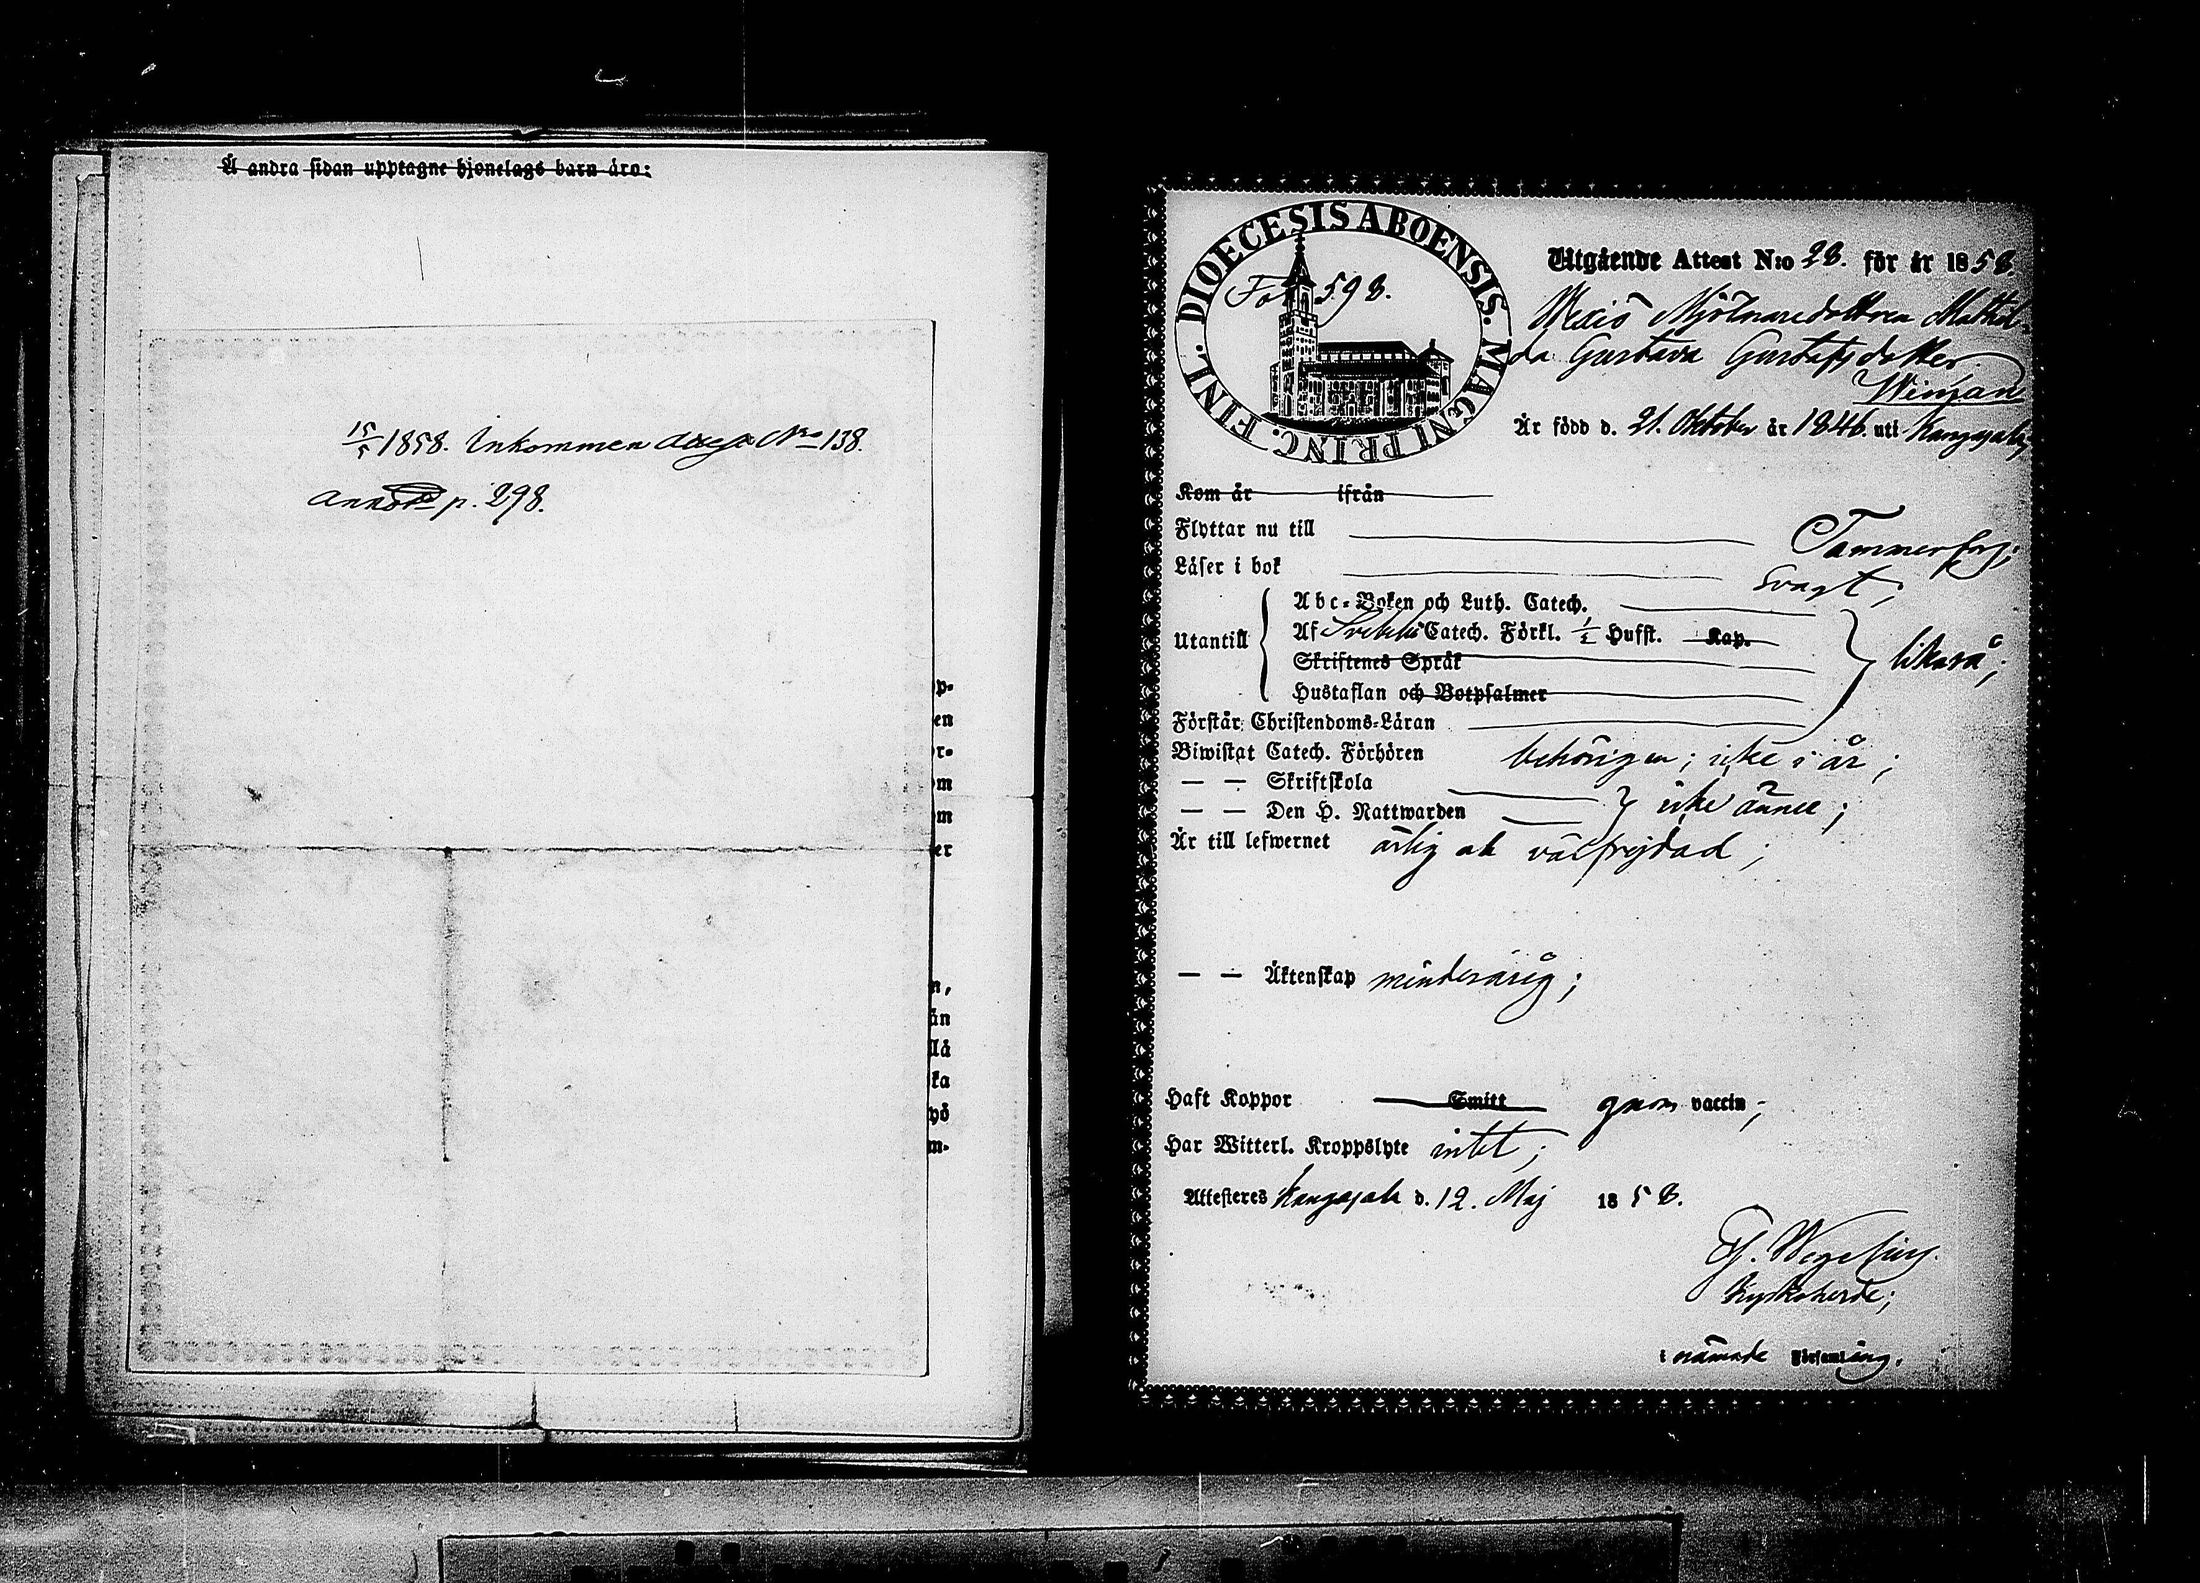 Å andra sidan upptagne hjonelags barn äro:
15/5 1858. Inkommen attest No 138.
annot. p. 298.
p-
en
r-
om
om
er
n,
än
llå
ka
yö
m-
DIOECESIS ABOENSIS. MAGNI PRINC. FINL.
Fol 598.
Utgående Attest N:o 28. för år 1858.
Mjölnaredottren Mathil-
da Gustava Gustafsdotter
Winjan
Är född d. 21. Oktober år 1846. uti Kangasala;
Kom år ifrån
Flyttar nu till Tammerfors;
Läser i bok svagt;
Utantill
Abc-Boken och Luth. Catech.
Af Svebelii Catech. Förkl. 1/2 Husst. Kap.
Skriftenes Språk
Hustaflan och Botpsalmer
likaså;
Förstår Christendoms-Läran
Biwistat Catech. Förhören behörigen; icke i år;
— — Skriftskola
— — Den H. Nattwarden icke ännu;
Är till lefwernet ärlig och välfrejdad;
— — Äktenskap minderårig;
Haft Koppor Smitt genom vaccin;
Har Witterl. Kroppslyte intet;
Attesteres Kangasala d. 12. Maj 1858.
Wegelius.
Kyrkoherde;
i nämnde Församling.